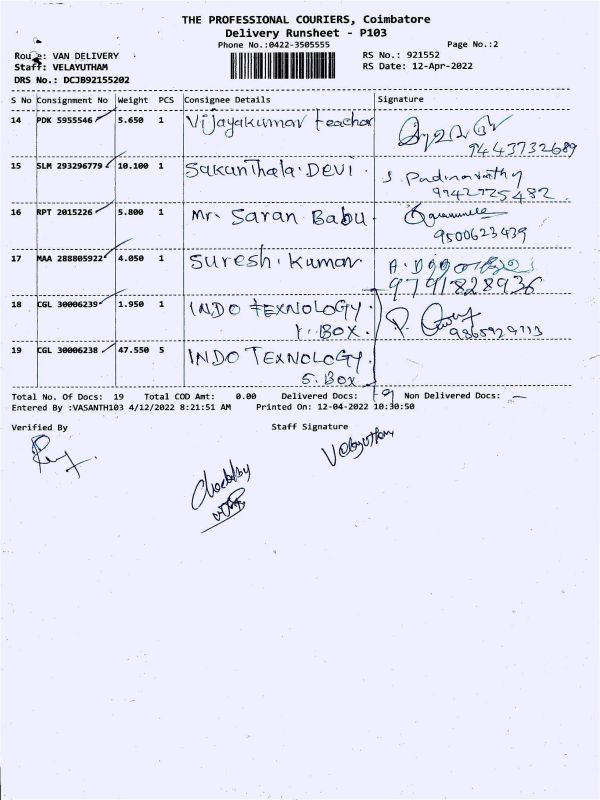 THE PROFESSIONAL COURIERS, Coimbatore
Delivery Runsheet - P103
Phone No.:0422-3505555 Page No.:2
Route: VAN DELIVERY RS No.: 921552
Staff: VELAYUTHAM RS Date: 12-Apr-2022
DRS No.: DCJB92155202
S No Consignment No Weight PCS Consignee Details Signature
14 PDK 5955546 5.650 1 Vijayakumar teachar
9443732689
15 SLM 293296779 10.100 1 Sakanthala. DEVI. S. Padmavathy
9942725482
16 RPT 2015226 5.800 1 Mr. Saran Babu
9500623439
17 MAA 288805922 4.050 1 Suresh. Kumar
9791828936
18 CGL 30006239 1.950 1 INDO TEXNOLOGY.
1. BOX.
19 CGL 30006238 47.550 5 INDO TEXNOLOGY.
5. BOX
Total No. Of Docs: 19 Total COD Amt: 0.00 Delivered Docs: 19 Non Delivered Docs: —
Entered By :VASANTH103 4/12/2022 8:21:51 AM Printed On: 12-04-2022 10:30:50
Verified By Staff Signature
Velayutham